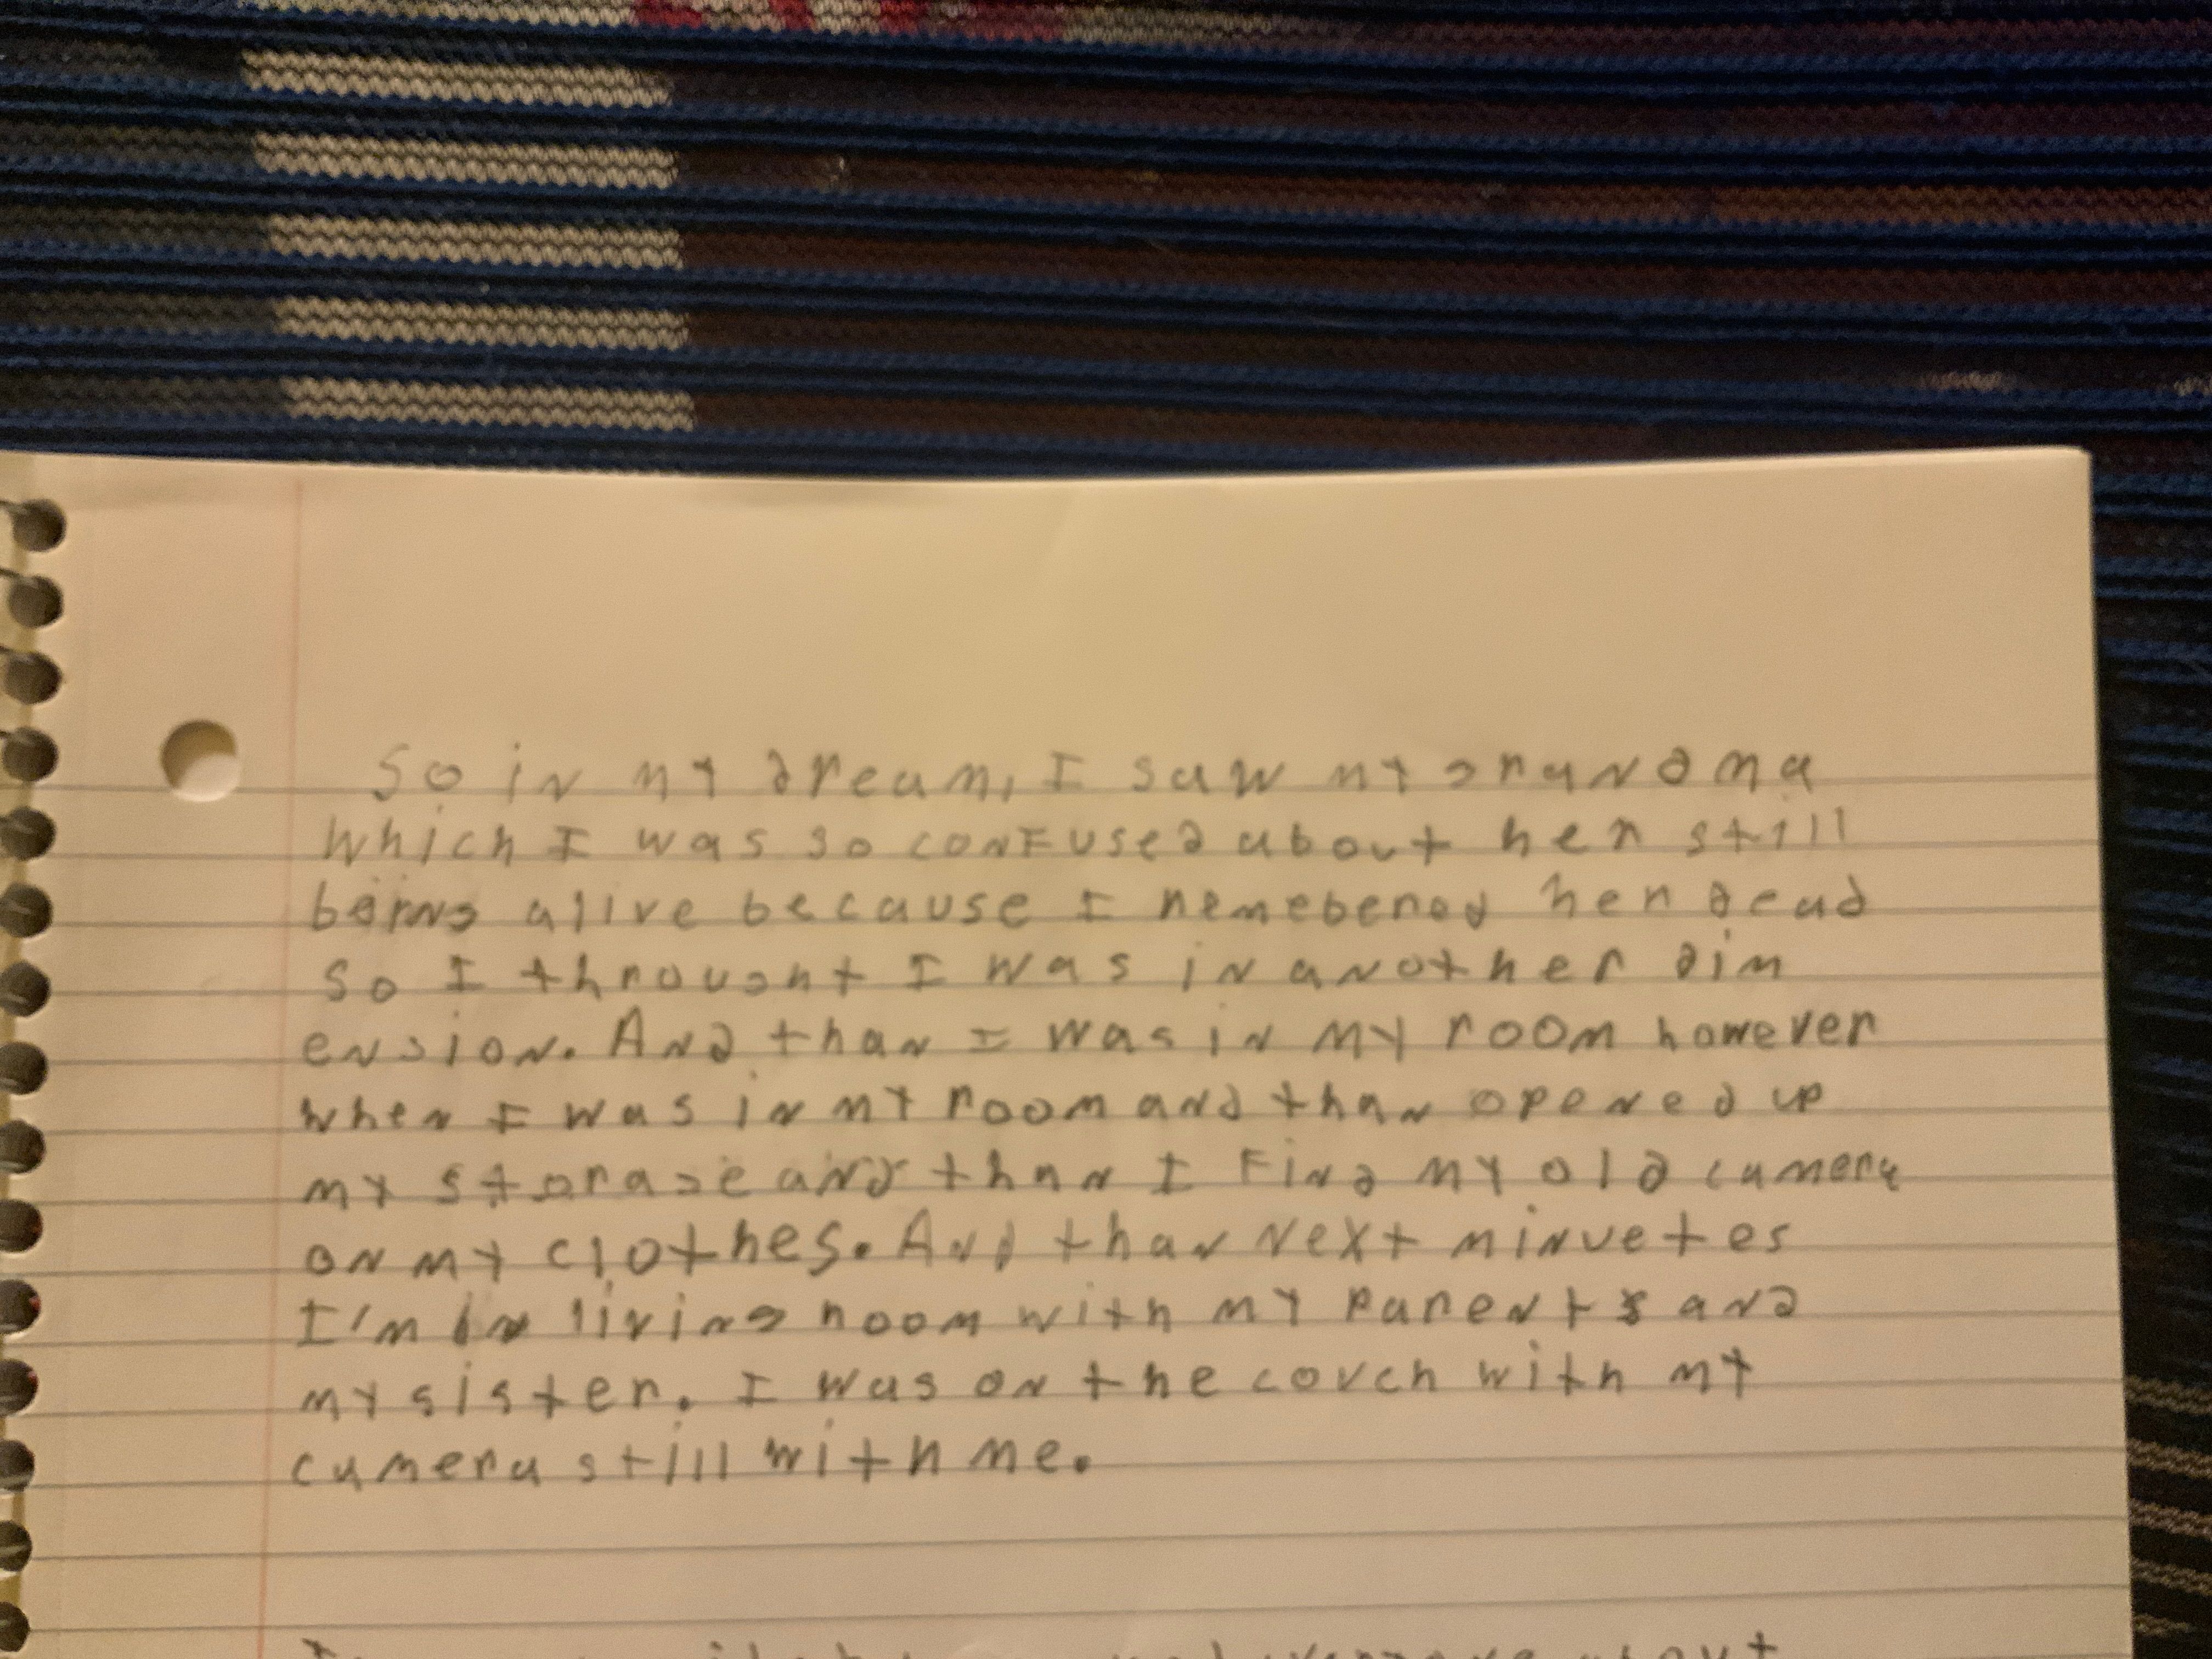 So in my dream, I saw my grandma
which I was so confused about her still
being alive because I remebered her dead
so I throught I was in another dim
ension. And than I was in my room however
when I was in my room and than opened up
my storage and than I find my old camera
on my clothes. And than next minvetes
I'm in living room with my parents and
my sister. I was on the couch with my
camera still with me.
about